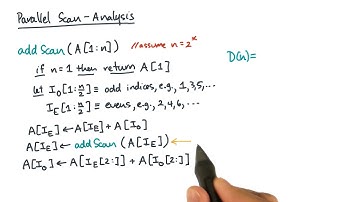 Parallel Scan - Analysis
addScan(A[1:n]) //assume n=2^k
if n=1 then return A[1]
let I_O[1:n/2] ≡ odd indices, e.g., 1,3,5,...
I_E[1:n/2] ≡ evens, e.g., 2,4,6,...
A[I_E] ← A[I_E] + A[I_O]
A[I_E] ← addScan(A[I_E]) ←
A[I_O] ← A[I_E[2:]] + A[I_O[2:]]
D(n)=